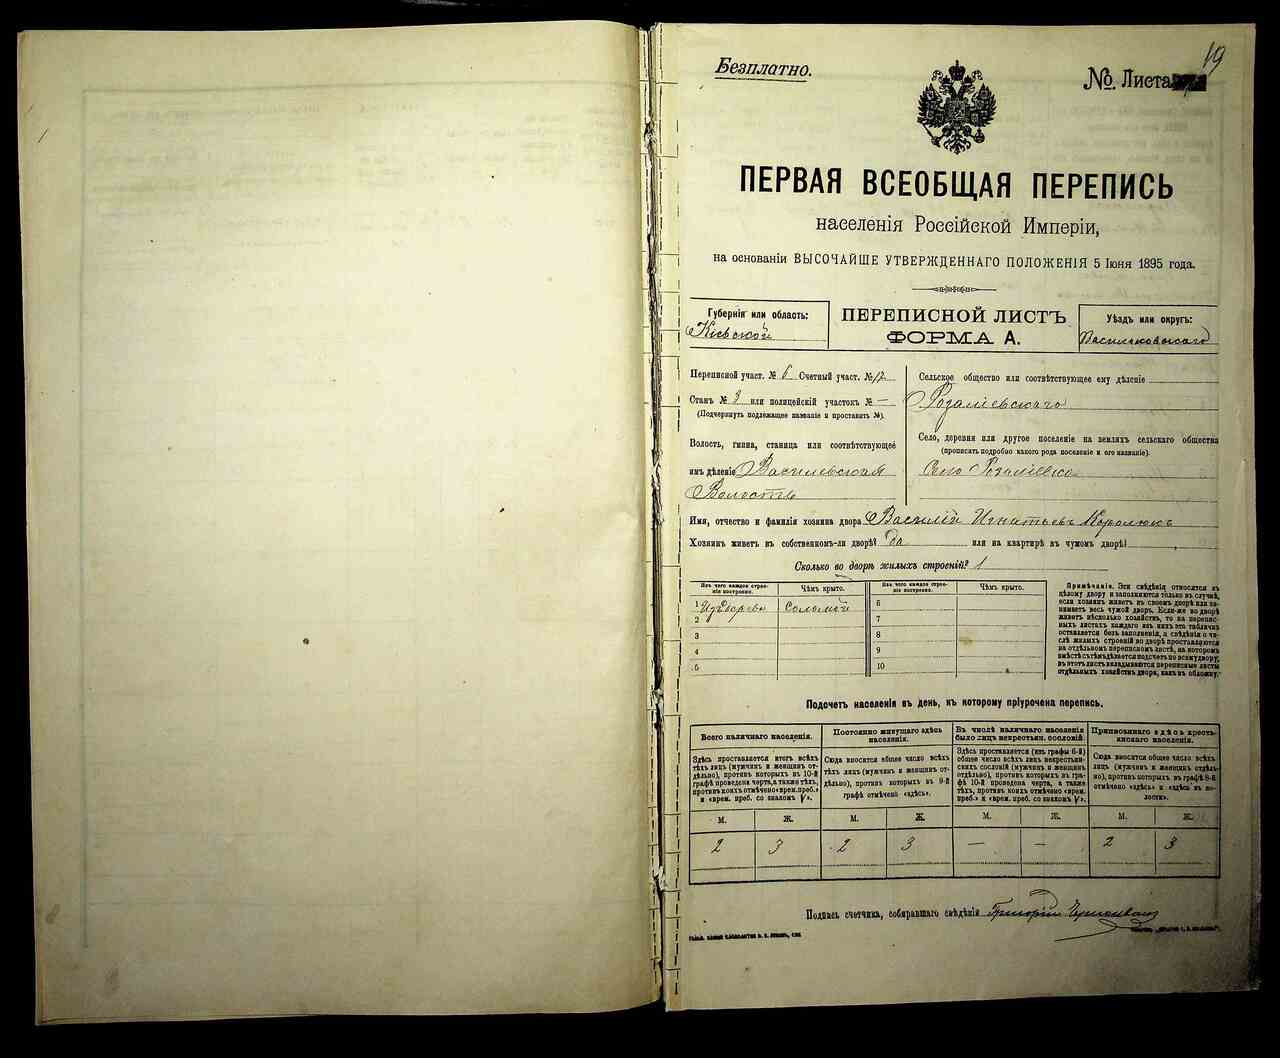 Безплатно.
19
№. Листа
ПЕРВАЯ ВСЕОБЩАЯ ПЕРЕПИСЬ
населенія Россійской Имперіи,
на основаніи ВЫСОЧАЙШЕ УТВЕРЖДЕННАГО ПОЛОЖЕНІЯ 5 Іюня 1895 года.
Губернія или область:
Кіевской
ПЕРЕПИСНОЙ ЛИСТЪ
ФОРМА А.
Уѣздъ или округъ:
Васильковскаго
Переписной участ. № 6 Счетный участ. № 12
Станъ № 3 или полицейскій участокъ № —
(Подчеркнуть подлежащее названіе и проставить №).
Волость, гмина, станица или соотвѣтствующее
имъ дѣленіе Василевская
Волость
Сельское общество или соотвѣтствующее ему дѣленіе
Розаліевскаго
Село, деревня или другое поселеніе на земляхъ сельскаго общества
(прописать подробно какого рода поселеніе и его названіе).
Село Розаліевка
Имя, отчество и фамилія хозяина двора Василій Игнатьевъ Королюкъ
Хозяинъ живетъ въ собственномъ-ли дворѣ? да или на квартирѣ въ чужомъ дворѣ?
Сколько во дворѣ жилыхъ строеній? 1
Изъ чего каждое строе-
ніе построено.
Чѣмъ крыто.
Изъ чего каждое строе-
ніе построено.
Чѣмъ крыто.
1 Изъ дерева Соломой
2
3
4
5
6
7
8
9
10
Примѣчаніе. Эти свѣдѣнія относятся къ
цѣлому двору и заполняются только въ случаѣ,
если хозяинъ живетъ въ своемъ дворѣ или за-
нимаетъ весь чужой дворъ. Если-же во дворѣ
живетъ нѣсколько хозяйствъ, то на перепис-
ныхъ листахъ каждаго изъ нихъ эта табличка
оставляется безъ заполненія, а свѣдѣнія о чи-
слѣ жилыхъ строеній во дворѣ проставляются
на отдѣльномъ переписномъ листѣ, на которомъ
вмѣстѣ съ тѣмъ дѣлается подсчетъ по всему двору,
въ этотъ листъ вкладываются переписные листы
отдѣльныхъ хозяйствъ двора, какъ въ обложку.
Подсчетъ населенія въ день, къ которому пріурочена перепись.
Всего наличнаго населенія.
Здѣсь проставляется итогъ всѣхъ
тѣхъ лицъ (мужчинъ и женщинъ от-
дѣльно), противъ которыхъ въ 10-й
графѣ проведена черта, а также тѣхъ,
противъ коихъ отмѣчено «врем. преб.»
и «врем. преб. со знакомъ V».
Постоянно живущаго здѣсь
населенія.
Сюда вносится общее число всѣхъ
тѣхъ лицъ (мужчинъ и женщинъ от-
дѣльно), противъ которыхъ въ 9-й
графѣ отмѣчено «здѣсь».
Въ числѣ наличнаго населенія
было лицъ некрестьян. сословій
Здѣсь проставляется (изъ графы 6-й)
общее число всѣхъ лицъ некрестьян-
скихъ сословій (мужчинъ и женщинъ
отдѣльно), противъ которыхъ въ гра-
фѣ 10-й проведена черта, а также
тѣхъ, противъ коихъ отмѣчено «врем.
преб.» и «врем. преб. со знакомъ V».
Приписаннаго здѣсь кресть-
янскаго населенія.
Сюда вносится общее число всѣхъ
лицъ (мужчинъ и женщинъ отдѣль-
но), противъ которыхъ въ графѣ 8-й
отмѣчено «здѣсь» и «здѣсь въ во-
лости».
М. Ж. М. Ж. М. Ж. М. Ж.
2 3 2 3 — — 2 3
Подпись счетчика, собиравшаго свѣдѣнія Григорій